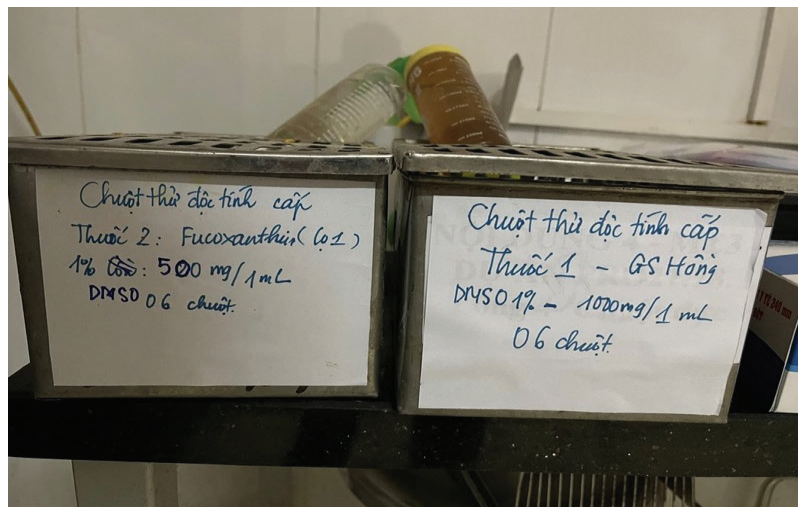 Chuột thử độc tính cấp
Thuốc 2: Fucoxanthin (Lọ 1)
1% : 500 mg/1mL
DMSO 06 chuột.
Chuột thử độc tính cấp
Thuốc 1 - GS Hồng
DMSO 1% - 1000mg/1 mL
06 chuột.